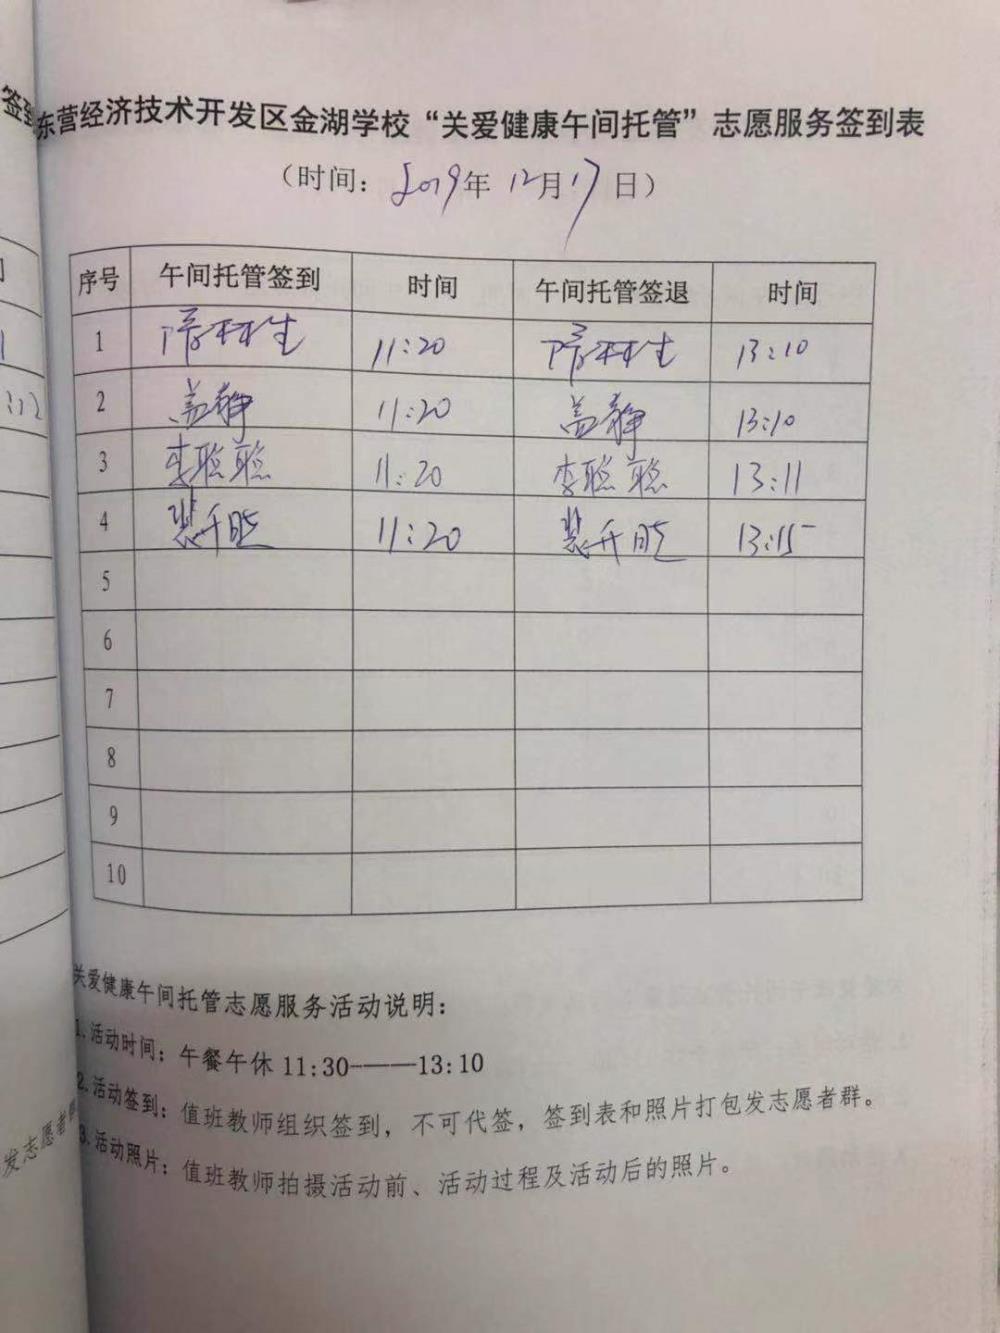 签到
东营经济技术开发区金湖学校“关爱健康午间托管”志愿服务签到表
（时间：2019年12月17日）
序号 午间托管签到 时间 午间托管签退 时间
1 11:20 13:10
2 盖静 11:20 盖静 13:10
3 李聪聪 11:20 李聪聪 13:11
4 11:20 13:15
5
6
7
8
9
10
关爱健康午间托管志愿服务活动说明：
1.活动时间：午餐午休 11:30——13:10
2.活动签到：值班教师组织签到，不可代签，签到表和照片打包发志愿者群。
3.活动照片：值班教师拍摄活动前、活动过程及活动后的照片。
:12
发志愿者群